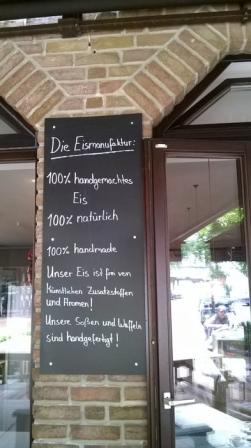 Die Eismanufaktur:
100% handgemachtes
Eis
100% natürlich
100% handmade
Unser Eis ist frei von
künstlichen Zusatzstoffen
und Aromen!
Unsere Soßen und Waffeln
sind handgefertigt!